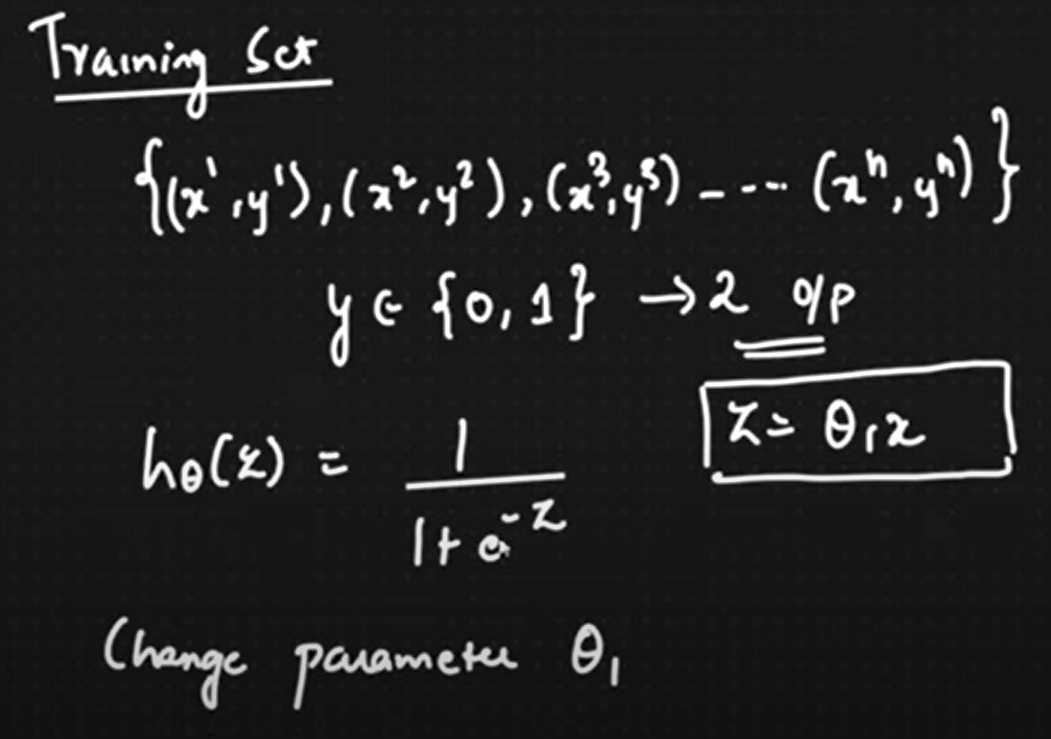 Training Set
{(x¹,y¹), (x²,y²), (x³,y³) - --- (xⁿ,yⁿ)}
y ∈ {0,1} → 2 o/p
z = θ₁x
hθ(z) = 1 / (1 + e^-z)
Change parameter θ₁